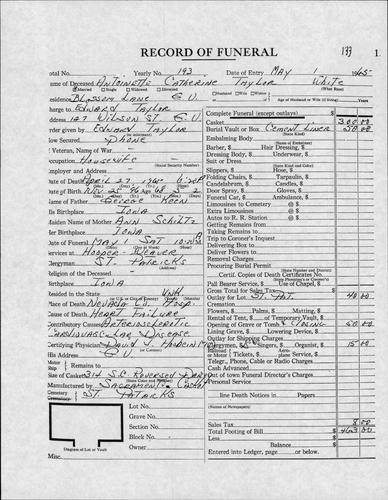 RECORD OF FUNERAL
193 1.
Total No. Yearly No. 193 Date of Entry MAY 1 1965
Name of Deceased ANTOINETTE CATHERINE TAYLOR WHITE
Married Single Widowed Divorced (What Race)
Residence BLOSSOM LANE G.V. Husband Wife Widow of Age of Husband or Wife (if living) Years
Charge to EDWARD TAYLOR
Address 127 WILSON ST. G.V.
Order given by EDWARD TAYLOR
How Secured PHONE
If Veteran, Name of War
Occupation HOUSEWIFE (Social Security Number)
Employer and Address
Date of Death APRIL 29, 1965 6:20
Date of Birth NOV. 25 Age 68 5
Name of Father GEORGE
His Birthplace IOWA
Maiden Name of Mother ANN SCHILTZ
Her Birthplace IOWA
Date of Funeral MAY 1 SAT 10:30 AM
Services at HOOPER-WEAVER
Clergyman ST. PATRICKS
Religion of the Deceased
Birthplace IOWA
Resided in the State UNK
Place of Death NEVADA CO. HOSP.
Cause of Death HEART FAILURE
Contributory Causes ARTERIOSCLEROTIC
CARDIOVASCULAR DISEASE
Certifying Physician DAVID
His Address G.V.
Motor Ship Remains to
Size of Casket S.C. REVERSED
Manufactured by SACRAMENTO CASKET
Cemetery Crematory ST. PATRICKS
Lot No.
Grave No.
Section No.
Block No.
Owner
Diagram of Lot or Vault
Misc.
Complete Funeral (except outlays) $
Casket 300 00
Burial Vault or Box CEMENT LINER 50 00
Embalming Body (Name of Embalmer)
Barber, $ Hair Dressing, $
Dressing Body, $ Underwear, $
Suit or Dress (State Kind and Color)
Slippers, $ Hose, $
Folding Chairs, $ Tarpaulin, $
Candelabrum, $ Candles, $
Door Spray, $ Gloves, $
Funeral Car, $ Ambulance, $
Limousines to Cemetery @ $
Extra Limousines @ $
Autos to R. R. Station @ $
Getting Remains from
Taking Remains to
Trip to Coroner's Inquest
Delivering Box to
Deliver Flowers to
Removal Charges
Procuring Burial Permit (State Number and District)
Certif. Copies of Death Certificates No.
Pall Bearer Service, $ Use of Chapel, $
Gross Total for Sales Tax $
Outlay for Lot ST. PAT. 40 00
Cremation
Flowers, $ Palms, $ Matting, $
Rental of Tent, $ of Temporary Vault, $
Opening of Grave or Tomb & CLOSING 50 00
Lining Grave, $ Lowering Device, $
Outlay for Shipping Charges
Clergymen, $ Singers, $ Organist, $ 15 00
Railroad or Motor Tickets, $ Aeroplane Service, $
Telegr., Phone, Cable or Radio Charges
Cash Advanced
Out of town Funeral Director's Charges
Personal Service
line Death Notices in Papers
(Names of Newspapers)
Sales Tax 8 00
Total Footing of Bill $ 463 00
Less $
Balance $
Entered into Ledger, page or below.